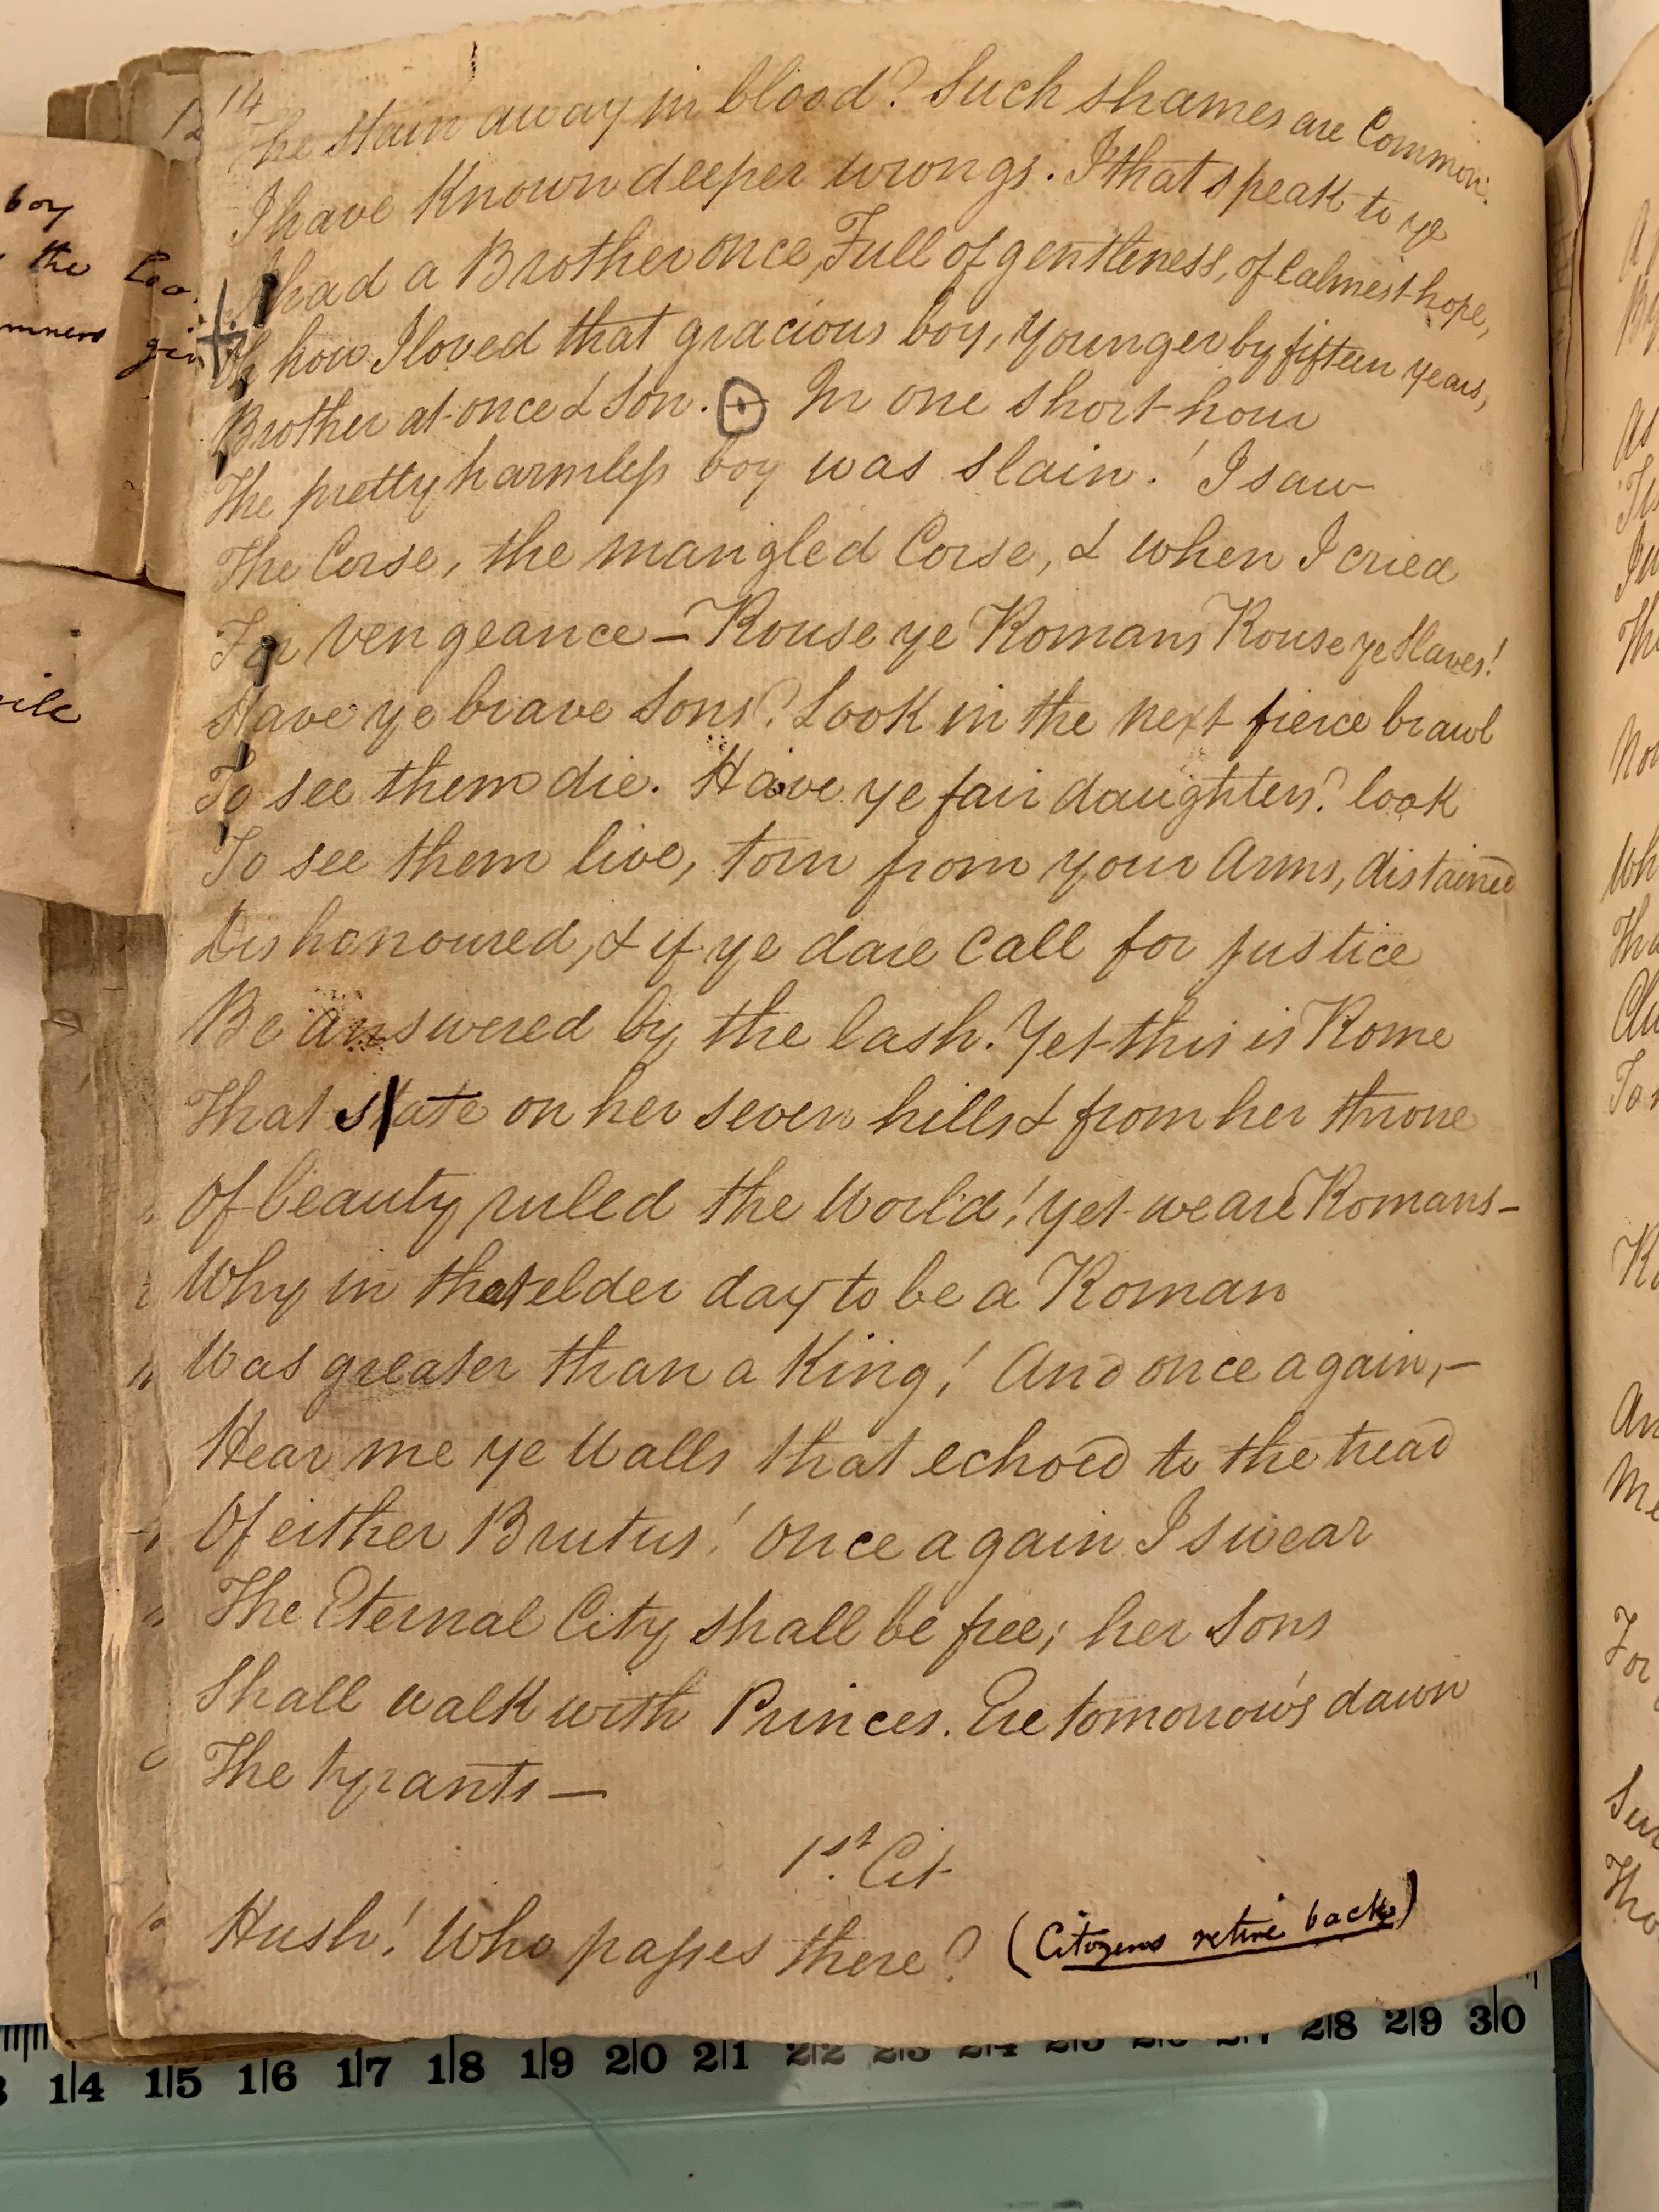 14
12
The stain away in blood? Such shames are Common.
I have Known deeper wrongs. I that speak to ye
I had a Brother once, Full of gentleness, of Calmest hope,
Oh how I loved that gracious boy, Younger by fifteen years,
Brother at once & Son. In one short hour
The pretty harmless boy was slain! I saw
The Corse, the mangled Corse, & when I cried
For vengeance – Rouse ye Romans Rouse ye Slaves!
Have ye brave Sons? Look in the next fierce brawl
To see them die. Have ye fair daughters? look
To see them live, torn from your Arms, distained
Dishonoured, & if ye dare Call for justice
Be answered by the lash. Yet this is Rome
That sate on her seven hills & from her throne
Of beauty ruled the World! yet we are Romans –
Why in that elder day to be a Roman
Was greater than a King! And once again, –
Hear me ye Walls that echoed to the tread
Of either Brutus! once again I swear
The Eternal City shall be free; her Sons
Shall walk with Princes. Ere tomorrow's dawn
The tyrants –
1st. Cit
Hush! Who passes there? (Citizens retire back)
boy
the
14 15 16 17 18 19 20 21 22 23 24 25 26 27 28 29 30